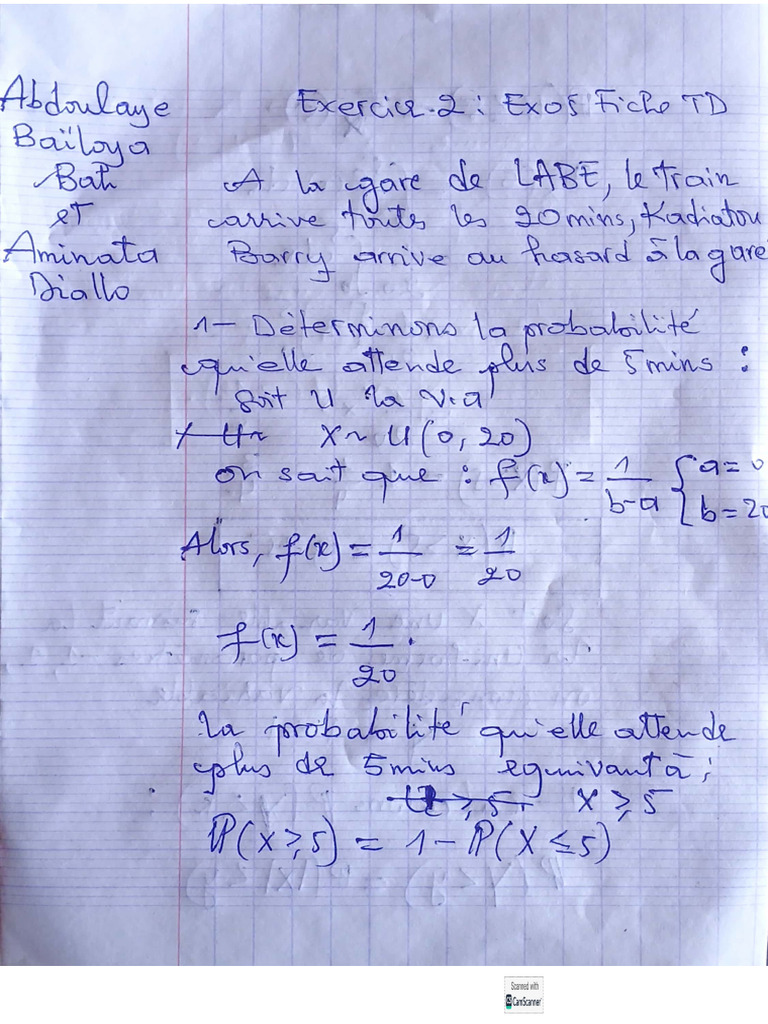 Abdoulaye
Baïloya
Bah
et
Aminata
Diallo
Exercice.2 : Exos Fiche TD
A la gare de LABE, le train
arrive toutes les 20mins, Kadiatou
Barry arrive au hasard à la gare
1- Déterminons la probabilité
qu'elle attende plus de 5mins :
Soit U la v.a
X ~ U(0, 20)
on sait que : f(x) = 1/(b-a) { a=0 b=20
Alors, f(x) = 1/(20-0) = 1/20
f(x) = 1/20 .
la probabilité qu'elle attende
plus de 5mins equivant à ;
X ≥ 5
P(X ≥ 5) = 1 - P(X ≤ 5)
Scanned with
CamScanner